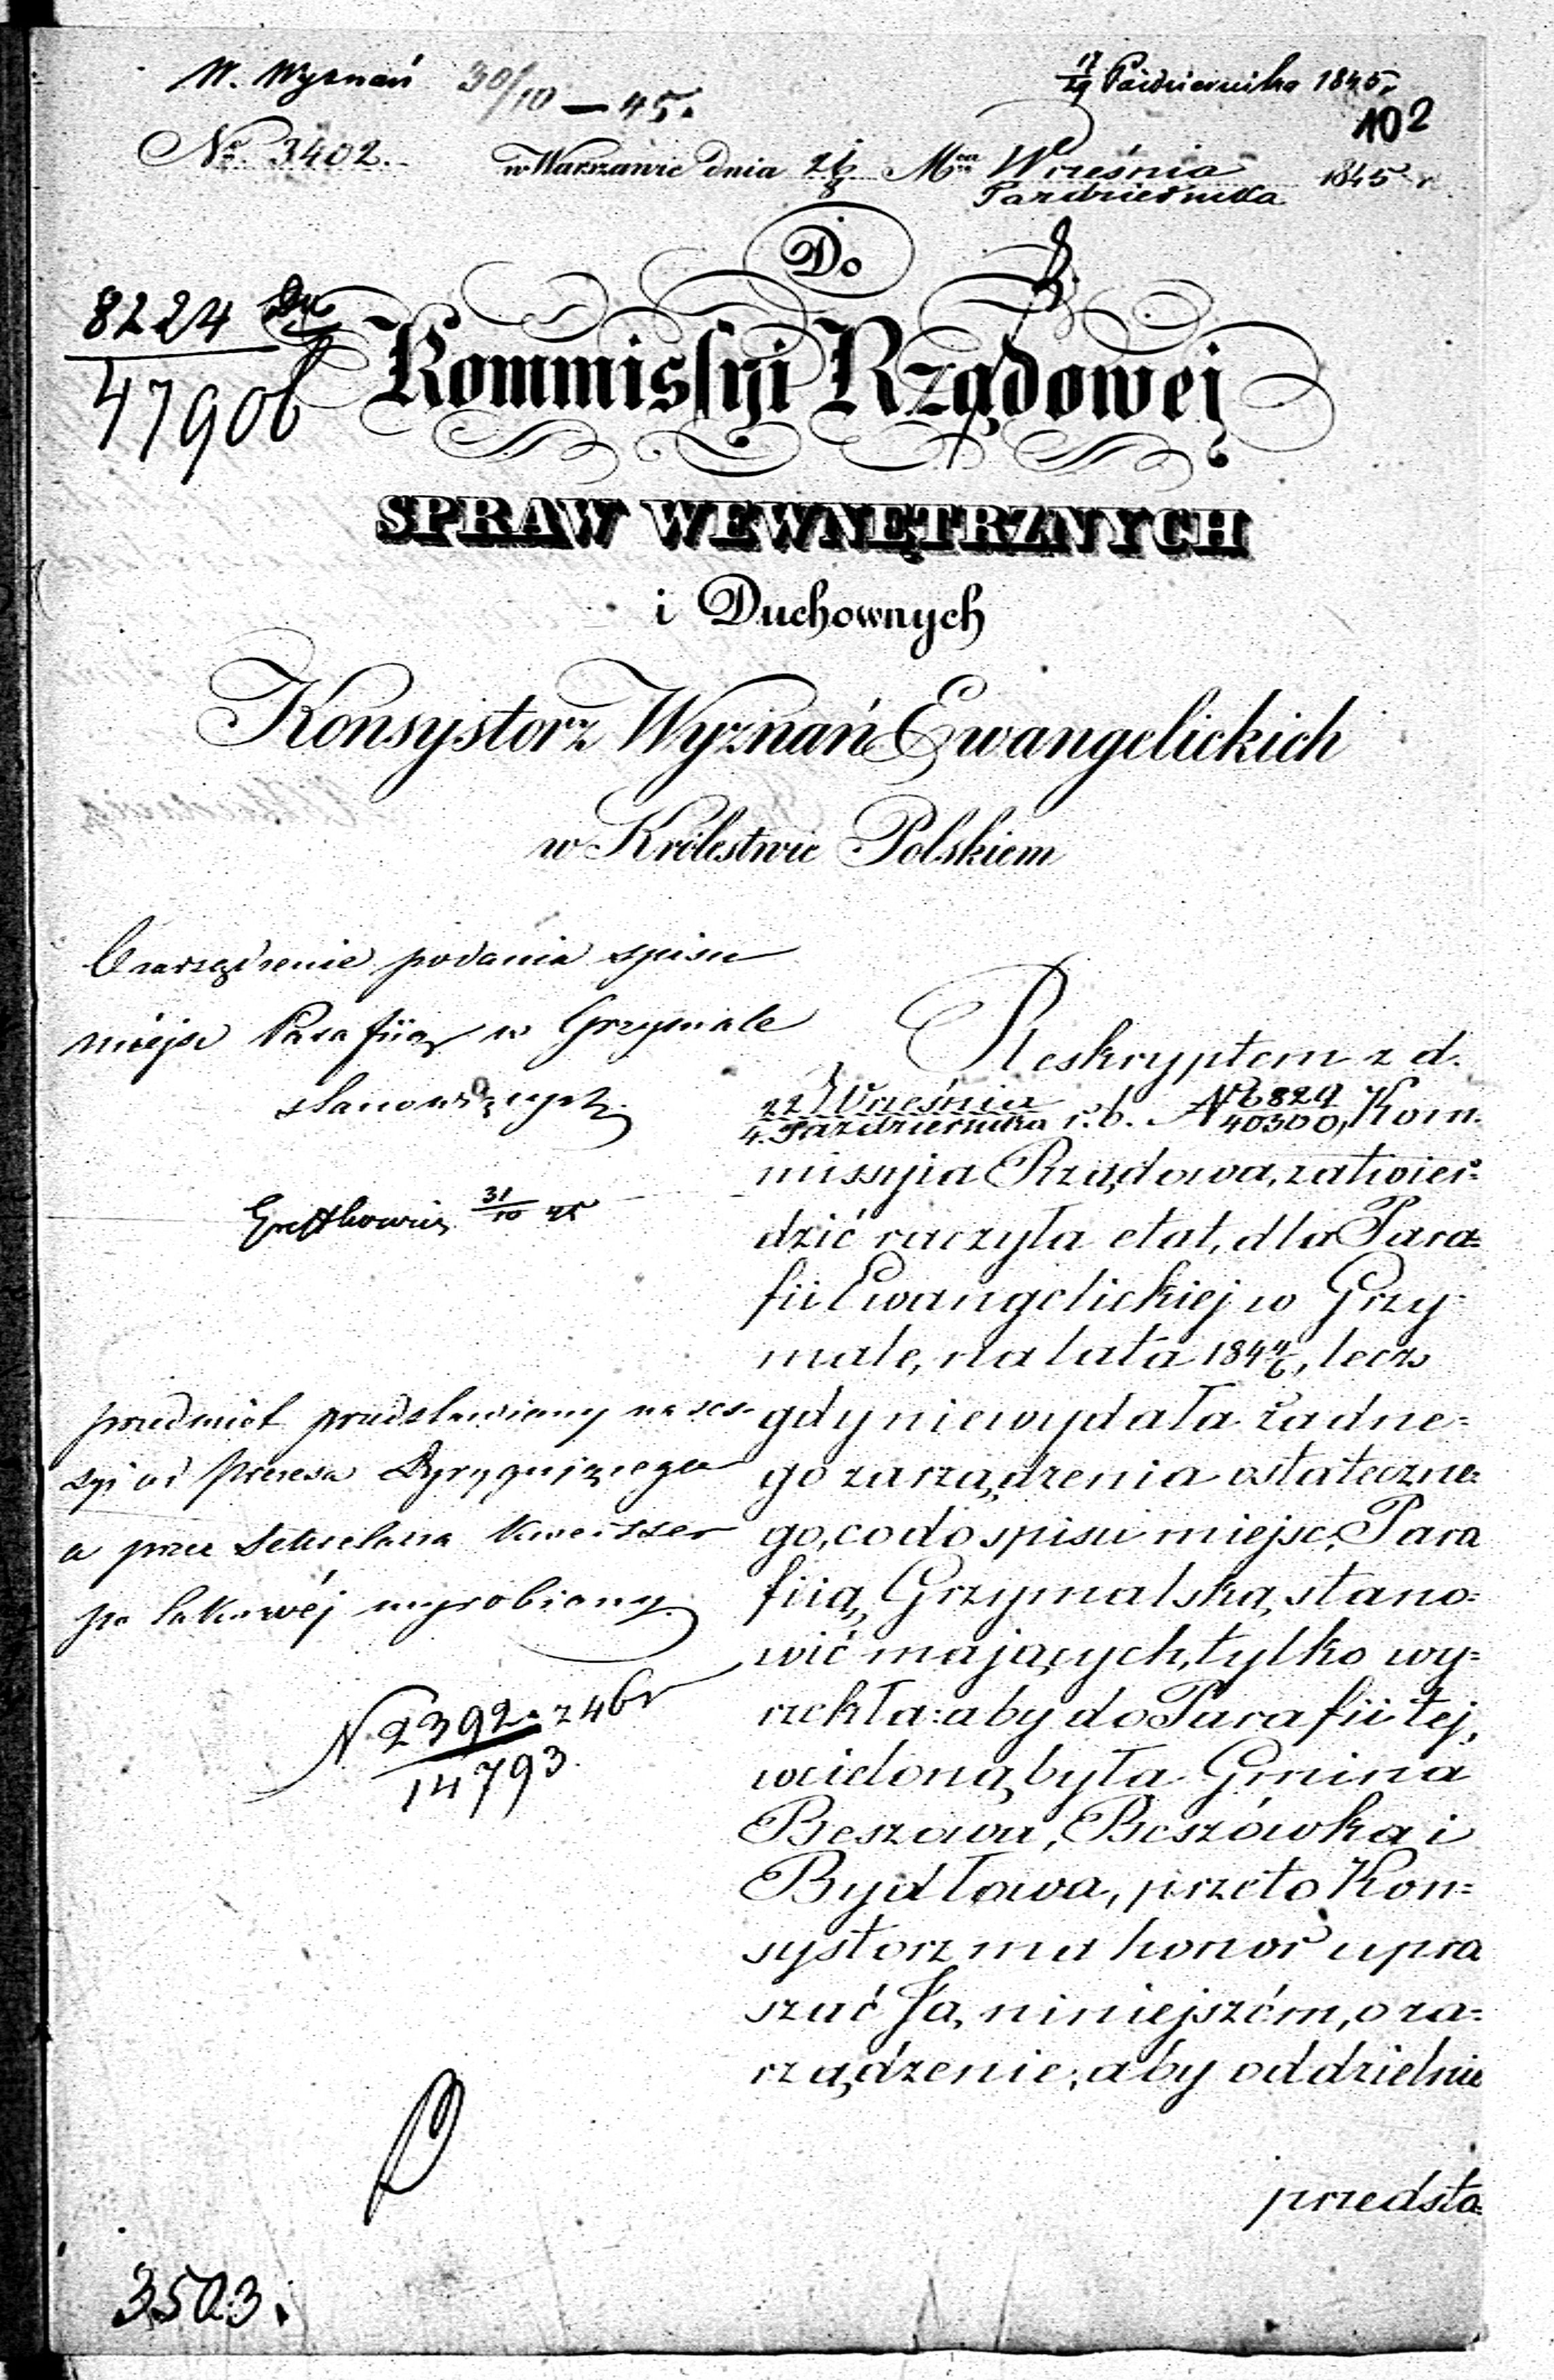 W. Wyznań 30/10 – 45.
17/29 Października 1845 r.
102
No. 3402.
w Warszawie dnia 26/8 Mca Września/Października 1845 r.
Do
8224
47906
Kommissyi Rządowej
SPRAW WEWNĘTRZNYCH
i Duchownych
Konsystorz Wyznań Ewangelickich
w Królestwie Polskiem
O zarządzenie podania spisu
miejsc Parafiią w Grzymale
stanowiących
31/10 45
przedmiot przedstawiony na ses-
syi od Prezesa Dyrygującego
a przez Sekretarza
po takowéj wyrobiony.
N 2392 z 46 r
14793.
Reskryptem z d.
22 Września/4 Października r. b. No 6829/40300, Kom-
missyia Rządowa, zatwier-
dzić raczyła etat, dla Para-
fii Ewangelickiej w Grzy-
male, na lata 184 4/6, lecz
gdy niewydała żadne-
go zarządzenia ostateczne-
go, co do spisu miejsc, Para
fiią Grzymalską stano-
wić mających, tylko wy-
rzekła: aby do Parafii tej,
wcieloną była Gmina
Beszowa, Beszówka i
Bydłowa, przeto Kon-
systorz ma honor upra
szać Ją, niniejszém, o za-
rządzenie; aby oddzielnie
przedsta-
3503.